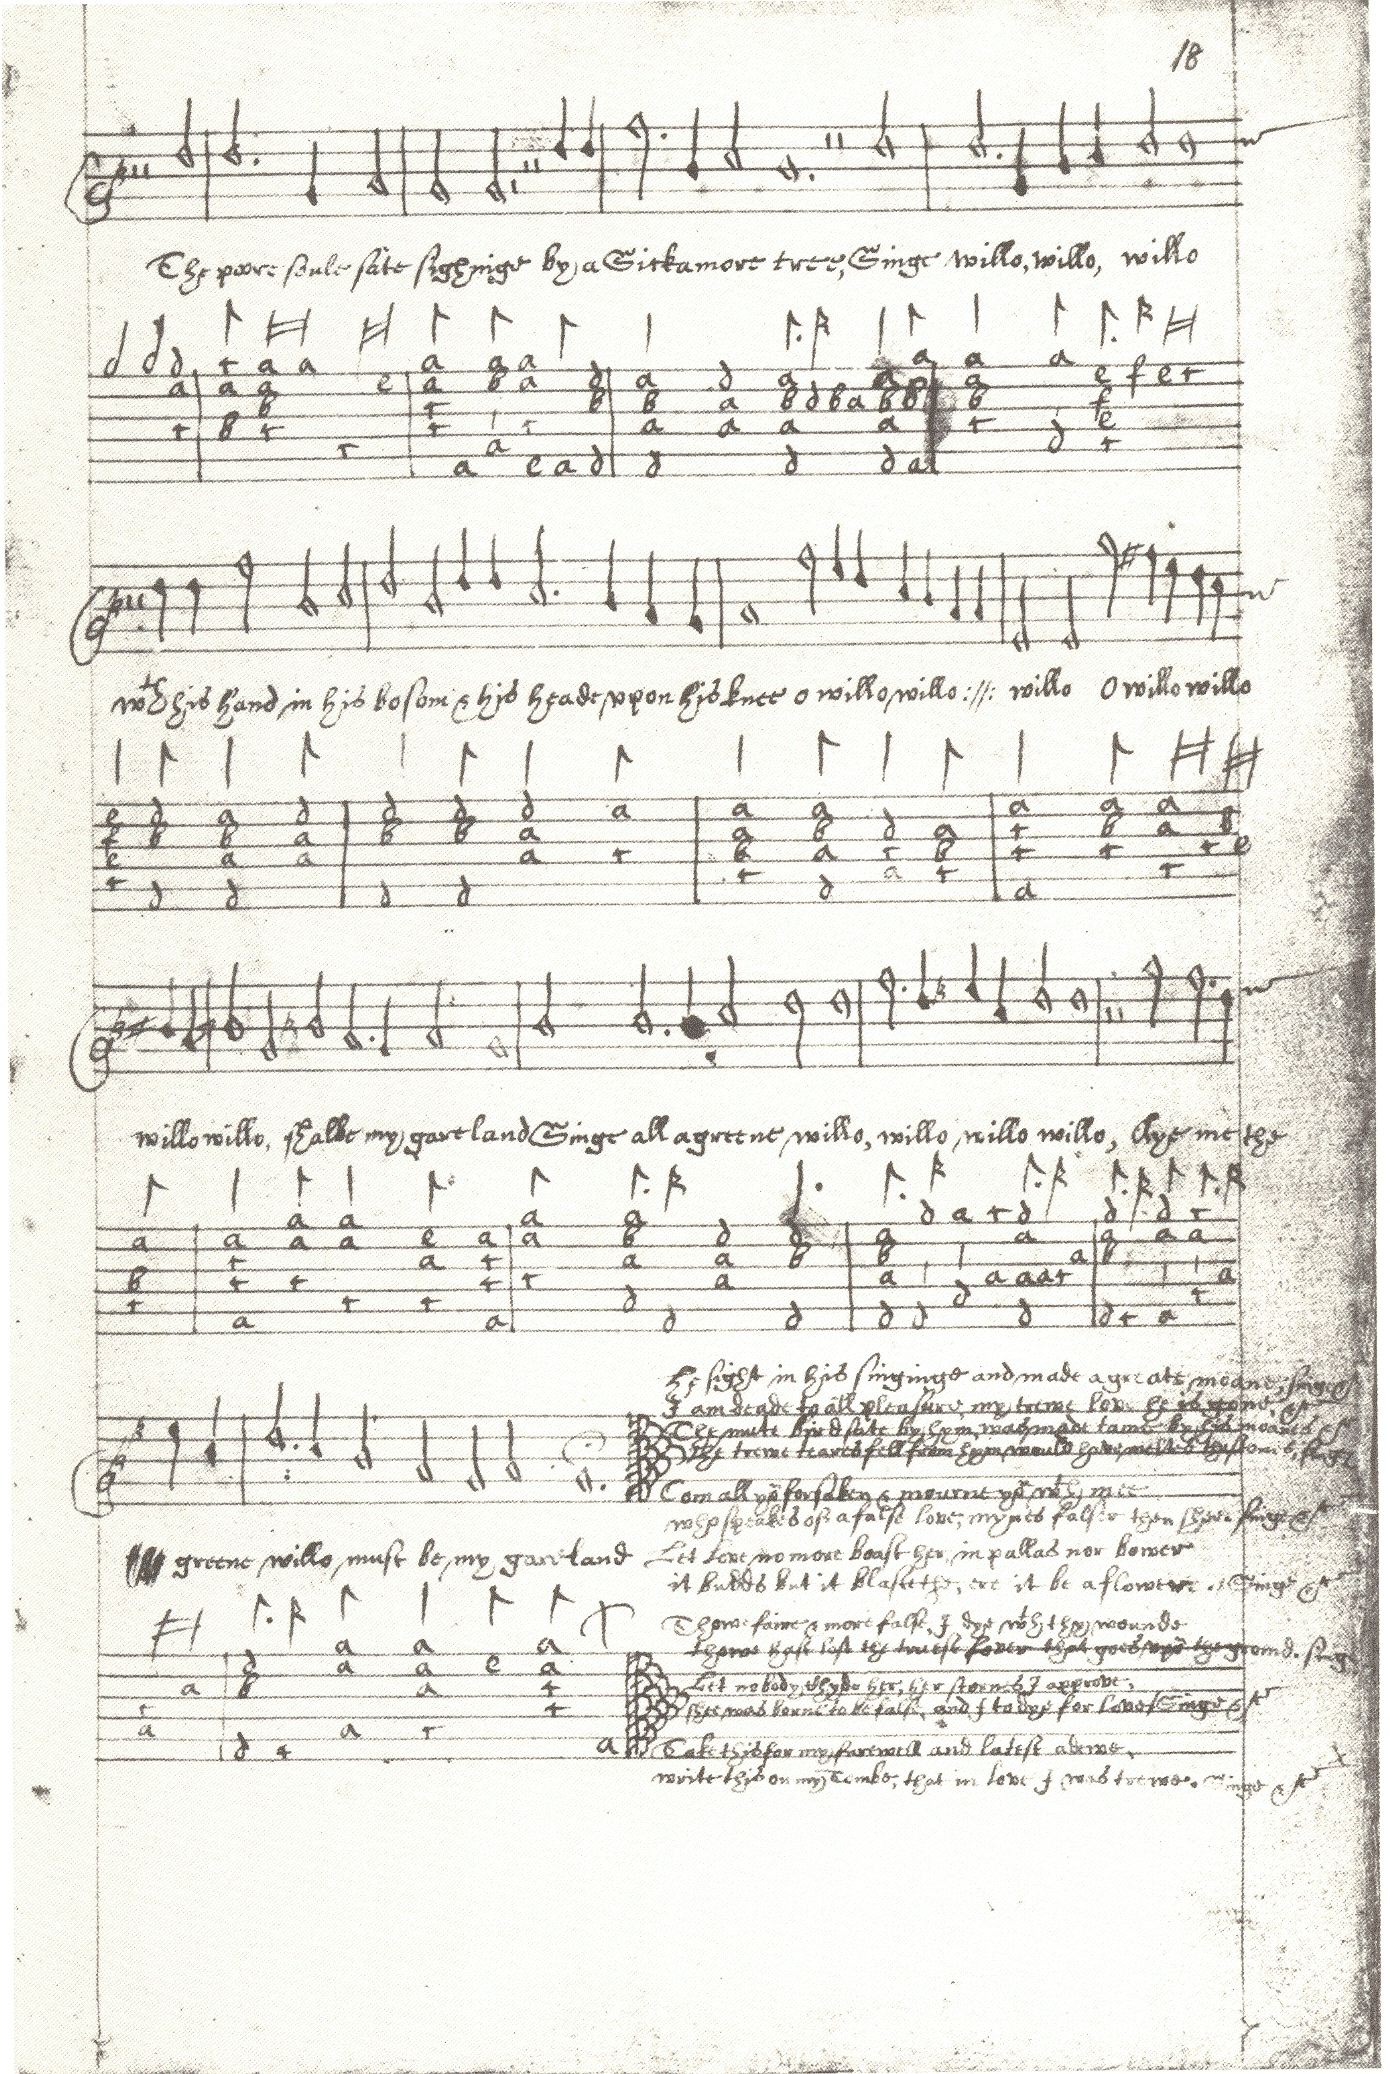 18
The poore soule sate sighinge by a Sickamore tree, Singe willo, willo, willo
wth his hand in his bosom & his heade upon his knee o willo willo :||: willo O willo willo
willo willo, shalbe my gareland Singe all a greene willo, willo willo willo, Aye me the
greene willo must be my gareland
he sight in his singinge and made a greate moane, singe &c
I am deade to all pleasure, my trewe love he is gone. &c
The mute bird sate by hym, was made tame by his moanes &c
the trewe teares fell from hym would have melted the stones, singe
Com all you forsaken & mourne you wth mee
who speakes of a false love, mynes falser then shee. singe &c
Let Love no more boast her, in pallas nor bower
it budds but it blasteth, ere it be a flowere. Singe &c
Thowe faire & more false, I dye wth thy wounde
thowe hast lost the truest lover that goes upon the ground. singe
Let nobody chyde her, her scornes I approve,
shee was borne to be false, and I to dye for love Singe &c
Take this for my farewell and latest adewe,
write this on my Tombe, that in love I was trewe. singe &c